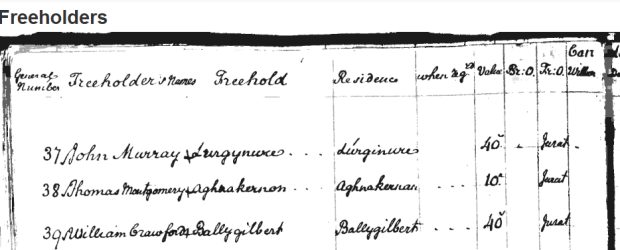 Freeholders
General Number Freeholder's Names Freehold Residence when Reg.d Value Br:O. Fr:O. Can Write
37 John Murray Lurgynure . . . Lurginure 40 . Jurat .
38 Thomas Montgomery Aghnakernon . . . Aghnakernan . . . 10 Jurat
39 William Crawford Ballygilbert Ballygilbert . . . 40 Jurat